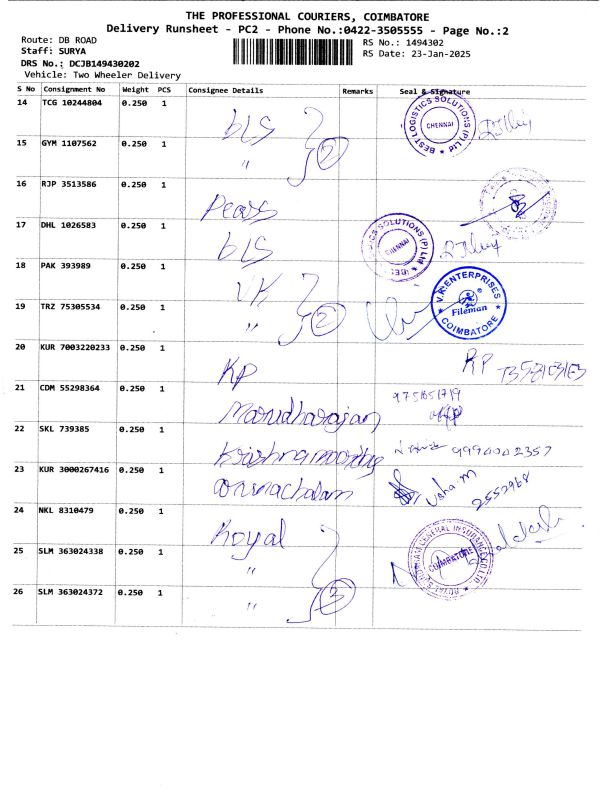 THE PROFESSIONAL COURIERS, COIMBATORE
Delivery Runsheet - PC2 - Phone No.:0422-3505555 - Page No.:2
Route: DB ROAD
Staff: SURYA
DRS No.: DCJB149430202
Vehicle: Two Wheeler Delivery
RS No.: 1494302
RS Date: 23-Jan-2025
S No Consignment No Weight PCS Consignee Details Remarks Seal & Signature
14 TCG 10244804 0.250 1 bLS
BEST LOGISTICS SOLUTIONS (P) Ltd
CHENNAI
15 GYM 1107562 0.250 1 " 2
16 RJP 3513586 0.250 1 Pears
17 DHL 1026583 0.250 1 bLS
CHENNAI
18 PAK 393989 0.250 1 VK
V.K. ENTERPRISES
Fileman
COIMBATORE
19 TRZ 75305534 0.250 1 " 2
20 KUR 7003220233 0.250 1 KP RP
21 CDM 55298364 0.250 1 Marudharajan
22 SKL 739385 0.250 1 Krishnamoorthy
23 KUR 3000267416 0.250 1 Arunachalam Usha M 2552968
24 NKL 8310479 0.250 1 Royal
COIMBATORE
25 SLM 363024338 0.250 1 "
26 SLM 363024372 0.250 1 " 3